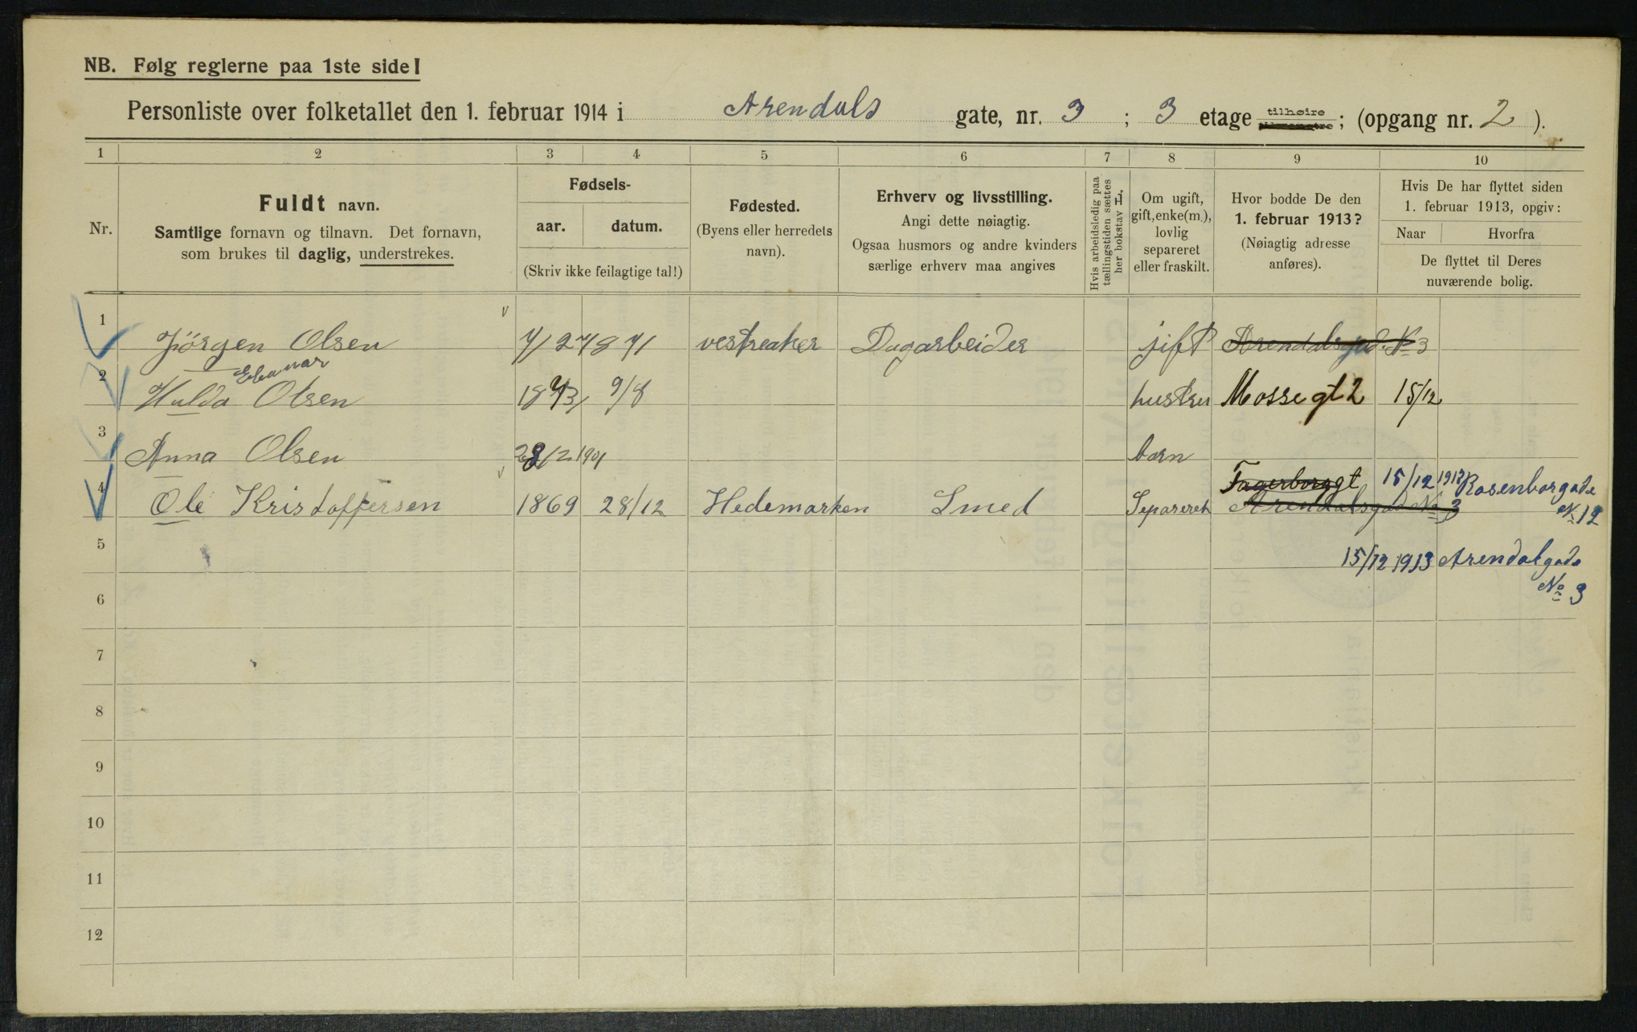 NB. Følg reglerne paa 1ste side!
Personliste over folketallet den 1. februar 1914 i Arendals gate, nr. 3 ; 3 etage tilhøire ; (opgang nr. 2 ).
1 2 3 4 5 6 7 8 9 10
Nr.
Fuldt navn.
Samtlige fornavn og tilnavn. Det fornavn,
som brukes til daglig, understrekes.
Fødsels-
aar. datum.
(Skriv ikke feilagtige tal!)
Fødested.
(Byens eller herredets
navn).
Erhverv og livsstilling.
Angi dette nøiagtig.
Ogsaa husmors og andre kvinders
særlige erhverv maa angives
Hvis arbeidsledig paa
tællingstiden sættes
her bokstav H.
Om ugift,
gift, enke(m.),
lovlig
separeret
eller fraskilt.
Hvor bodde De den
1. februar 1913?
(Nøiagtig adresse
anføres).
Hvis De har flyttet siden
1. februar 1913, opgiv:
Naar Hvorfra
De flyttet til Deres
nuværende bolig.
1 Jörgen Olsen vestreaker Dagarbeider jift Arendalsgad. No 3
2 Hulda Olsen 1873 9/8 hustru Mosse gt 2 15/12
3 Anna Olsen 28/2 1901 barn
Fagerborggt 15/12 1913 Rosenborgade
4 Ole Kristoffersen 1869 28/12 Hedemarken Smed Separeret Arendalsgad No 3 No 12
5 15/12 1913 Arendalgade
6 No 3
7
8
9
10
11
12